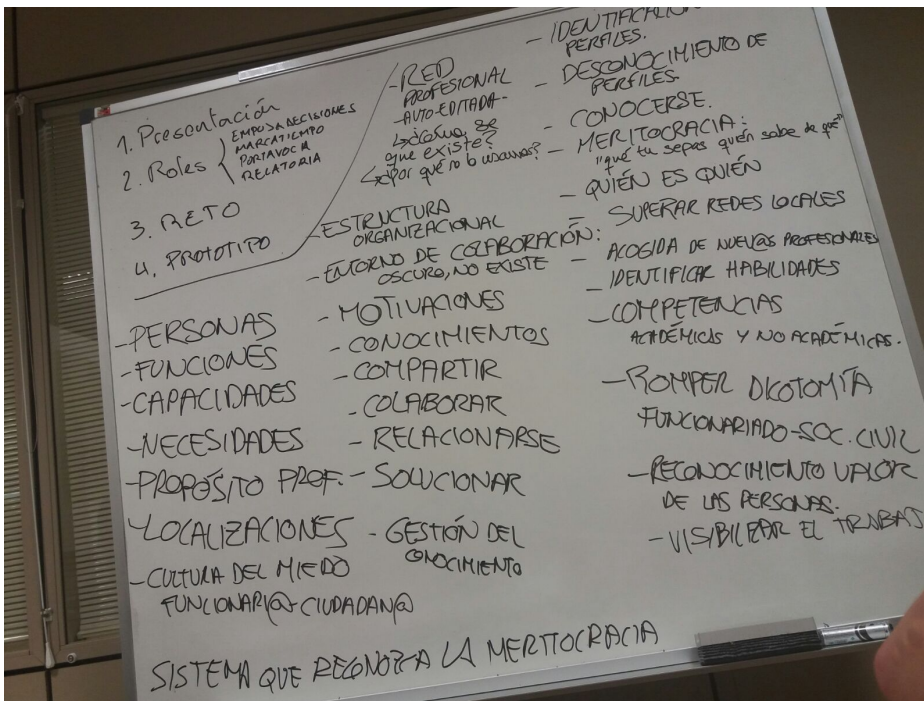 1. Presentación
2. Roles
EMPUJA DECISIONES
MARCATIEMPO
PORTAVOCÍA
RELATORIA
3. RETO
4. PROTOTIPO
-RED
PROFESIONAL
-AUTO-EDITADA-
que existe?
¿Por qué no lo usamos?
-ESTRUCTURA
ORGANIZACIONAL
-ENTORNO DE COLABORACIÓN:
OSCURO, NO EXISTE
-PERSONAS
-FUNCIONES
-CAPACIDADES
-NECESIDADES
-PROPÓSITO PROF.
-LOCALIZACIONES
-CULTURA DEL MIEDO
FUNCIONARI@-CIUDADAN@
-MOTIVACIONES
-CONOCIMIENTOS
-COMPARTIR
-COLABORAR
-RELACIONARSE
-SOLUCIONAR
-GESTIÓN DEL
CONOCIMIENTO
-IDENTIFICACIÓN
PERFILES.
-DESCONOCIMIENTO DE
PERFILES.
-CONOCERSE.
-MERITOCRACIA:
"qué tu sepas quién sabe de qué"
-QUIÉN ES QUIÉN
-SUPERAR REDES LOCALES
-ACOGIDA DE NUEV@S PROFESIONALES
-IDENTIFICAR HABILIDADES
-COMPETENCIAS
ACADÉMICAS Y NO ACADÉMICAS.
-ROMPER DICOTOMÍA
FUNCIONARIADO-SOC. CIVIL
-RECONOCIMIENTO VALOR
DE LAS PERSONAS.
-VISIBILIZAR EL TRABAJ
SISTEMA QUE RECONOZCA LA MERITOCRACIA